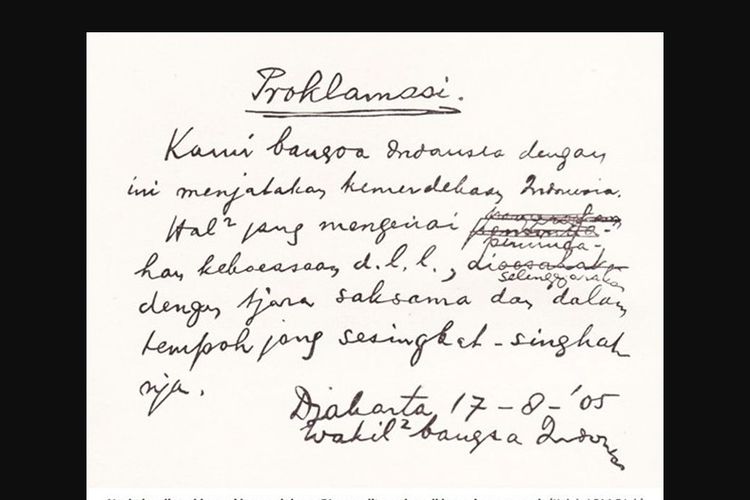 Proklamasi.
Kami bangsa Indonesia dengan
ini menjatakan kemerdekaan Indonesia.
Hal² jang mengenai
peminda-
han kekoeasaan d.l.l.,
selenggarakan
dengan tjara saksama dan dalam
tempoh jang sesingkat-singkat
nja.
Djakarta 17 - 8 - '05
Wakil² bangsa Indonesia